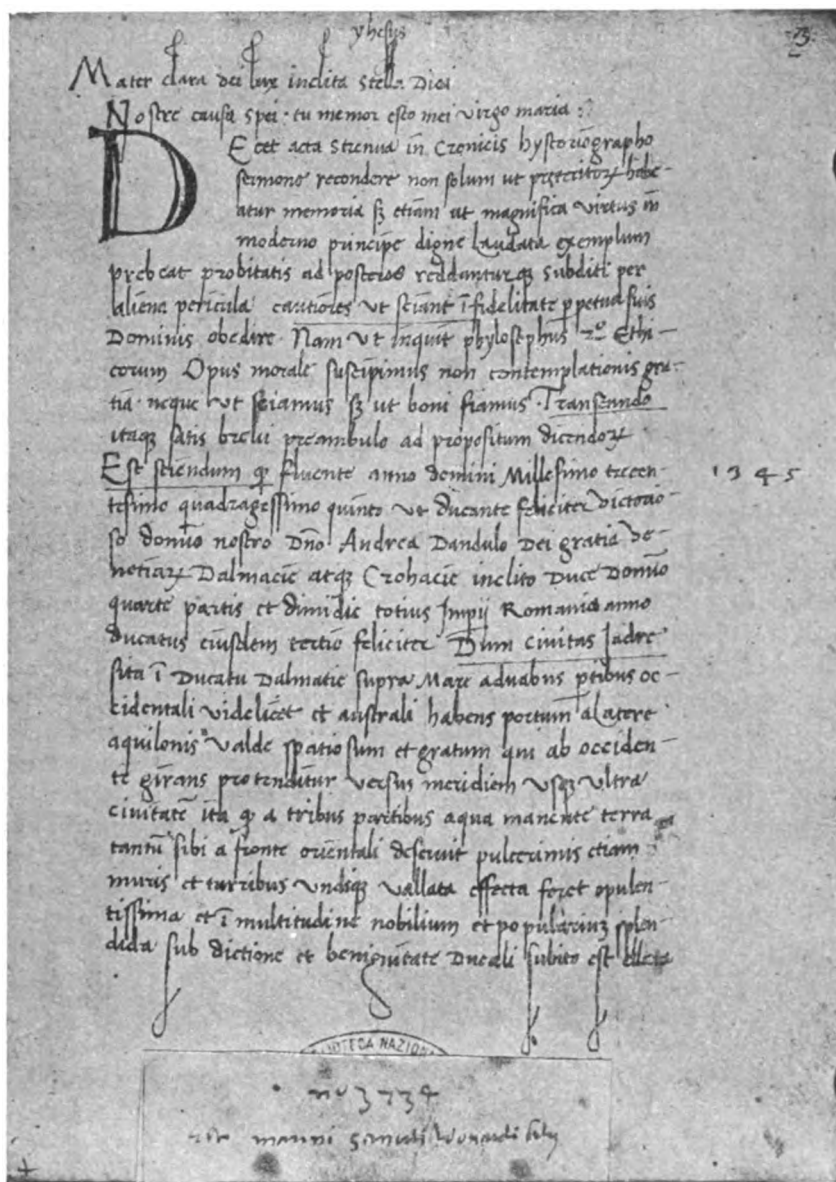 yhesus
73
Mater clara dei lux inclita Stella Diei
Nostre causa spei · tu memor esto mei virgo maria :
Decet acta Strenua in Cronicis hystoriographo
sermone recondere non solum ut preteritoꝝ habe-
atur memoria sꝫ etiam ut magnifica virtus in
moderno principe digne Laudata exemplum
prebeat probitatis ad posteros reddanturqꝫ subditi per
aliena pericula cautiores ut sciant ī fidelitate ꝑpetua suis
Dominis obedire · Nam ut inquit phylosophus 2º Ethi-
corum Opus morale suscipimus non contemplationis gra-
tia · neque ut sciamus sꝫ ut boni fiamus · Transeando
itaqꝫ satis brevi preambulo ad propositum dicendoꝝ
Est sciendum ꝙ fluente anno domini Millesimo trecen-
1345
tesimo quadragessimo quinto ut ducante feliciter victorio-
so domīo nostro Dño Andrea Dandulo Dei gratia Ve-
netiaꝝ Dalmacie atqꝫ Crohacie inclito Duce Domīo
quarte partis et dimidie totius Impij Romanie anno
ducatus eiusdem tertio feliciter Dum Civitas Jadre
sita ī Ducatu Dalmatie supra Mare aduabus ptibus oc-
cidentali videlicet et australi habens portum a Latere
aquilonis valde spatiosum et gratum qui ab occiden-
te girans protenditur versus meridiem usqꝫ ultra
civitatē ita ꝙ a tribus partibus aqua manente terra
tantū sibi a fronte orientali deservit pulcerimis etiam
muris et turribus undiqꝫ vallata effecta foret opulen-
tissima et ī multitudine nobilium et popularium splen-
dida sub dictione et benignitate Ducali subito est ellata
BLIOTECA NAZION
nº 3734
marini sanuti Leonardi filij